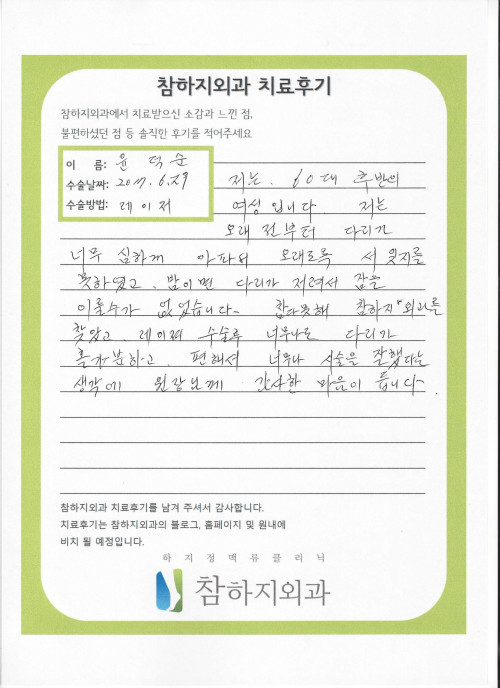 참하지외과 치료후기
참하지외과에서 치료받으신 소감과 느낀 점,
불편하셨던 점 등 솔직한 후기를 적어주세요
이 름: 윤덕순
수술날짜: 2017. 6. 29
수술방법: 레이저
저는. 60대 후반의
여성 입니다. 저는
오래 전부터 다리가
너무 심하게 아파서 오래도록 서 있지를
못하였고. 밤이면 다리가 저려서 잠을
이룰수가 없었습니다. 참다못해 참하지"외과를
찾았고. 레이저 수술후 너무나도 다리가
홀가분하고. 편해서 너무나 시술을 잘했다는
생각에 원장님께 감사한 마음이 듭니다.
참하지외과 치료후기를 남겨 주셔서 감사합니다.
치료후기는 참하지외과의 블로그, 홈페이지 및 원내에
비치 될 예정입니다.
하지정맥류클리닉
참하지외과